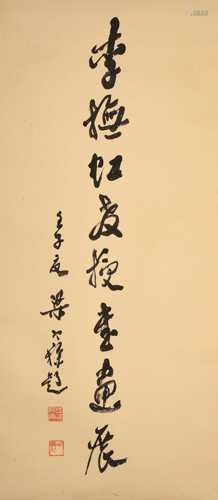 李撫虹教授書畫展
壬子夏 梁　題